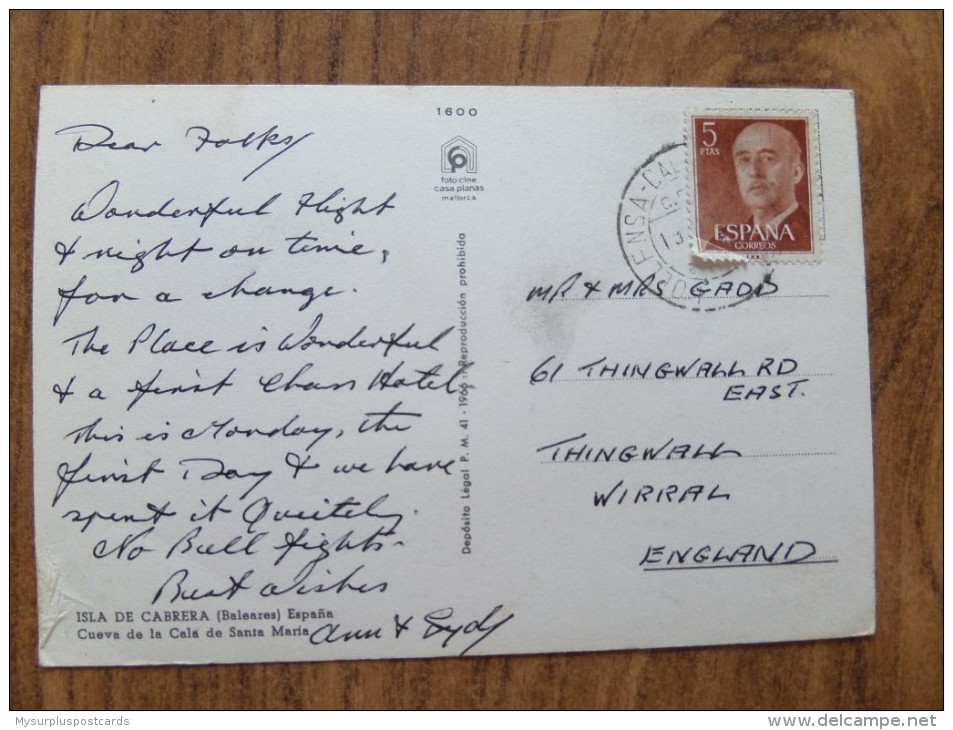 1600
foto-cine
casa planas
mallorca
Dear Folks
Wonderful Flight
& right on time,
for a change.
The Place is Wonderful
& a first Class Hotel,
this is Monday, the
first Day & we have
spent it Queitely.
No Bull fights-
Best wishes
Ann & Syd
ISLA DE CABRERA (Baleares) España
Cueva de la Cala de Santa María
Depósito Légal P. M. 41 - 1966 Reproducción prohibida
5
PTAS
ESPAÑA
CORREOS
MR & MRS GADD
61 THINGWALL RD
EAST.
THINGWALL
WIRRAL
ENGLAND
Mysurpluspostcards
www.delcampe.net